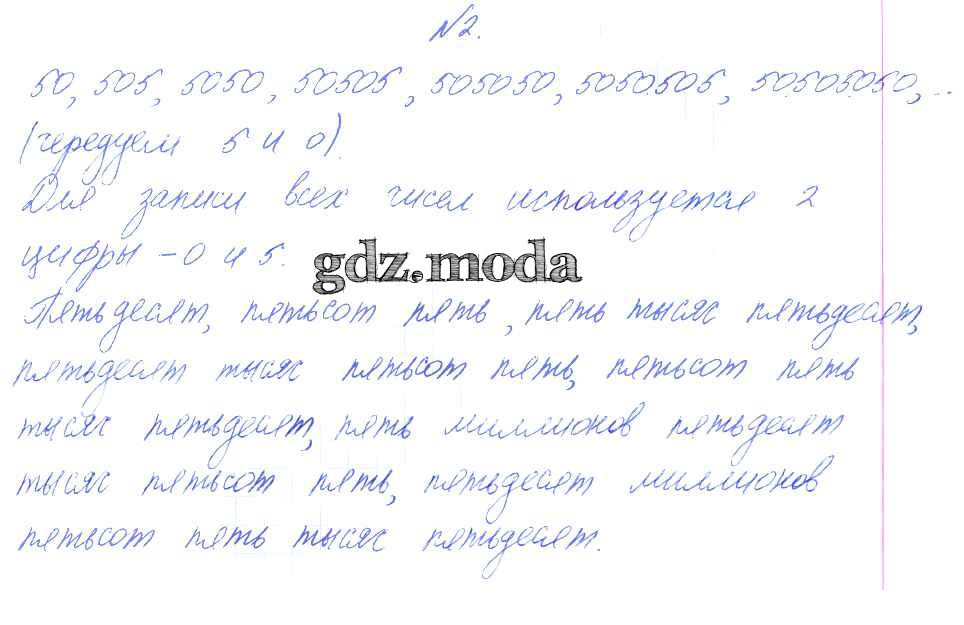 №2.
50, 505, 5050, 50505, 505050, 5050505, 50505050, ...
(чередуем 5 и 0).
Для записи всех чисел используется 2
цифры - 0 и 5.
gdz.moda
Пятьдесят, пятьсот пять, пять тысяч пятьдесят,
пятьдесят тысяч пятьсот пять, пятьсот пять
тысяч пятьдесят, пять миллионов пятьдесят
тысяч пятьсот пять, пятьдесят миллионов
пятьсот пять тысяч пятьдесят.